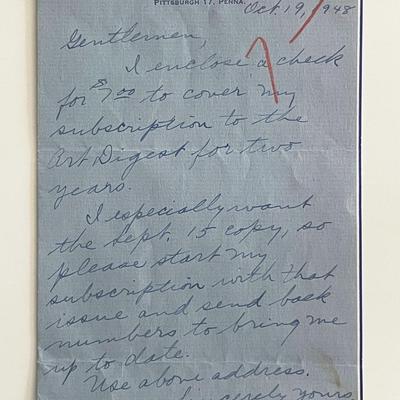 PITTSBURGH 17, PENNA.
Oct. 19, 1948
Gentlemen,
I enclose a check
for $7.00 to cover my
subscription to the
Art Digest for two
years.
I especially want
the Sept. 15 copy, so
please start my
subscription with that
issue and send back
numbers to bring me
up to date.
Use above address.
yours